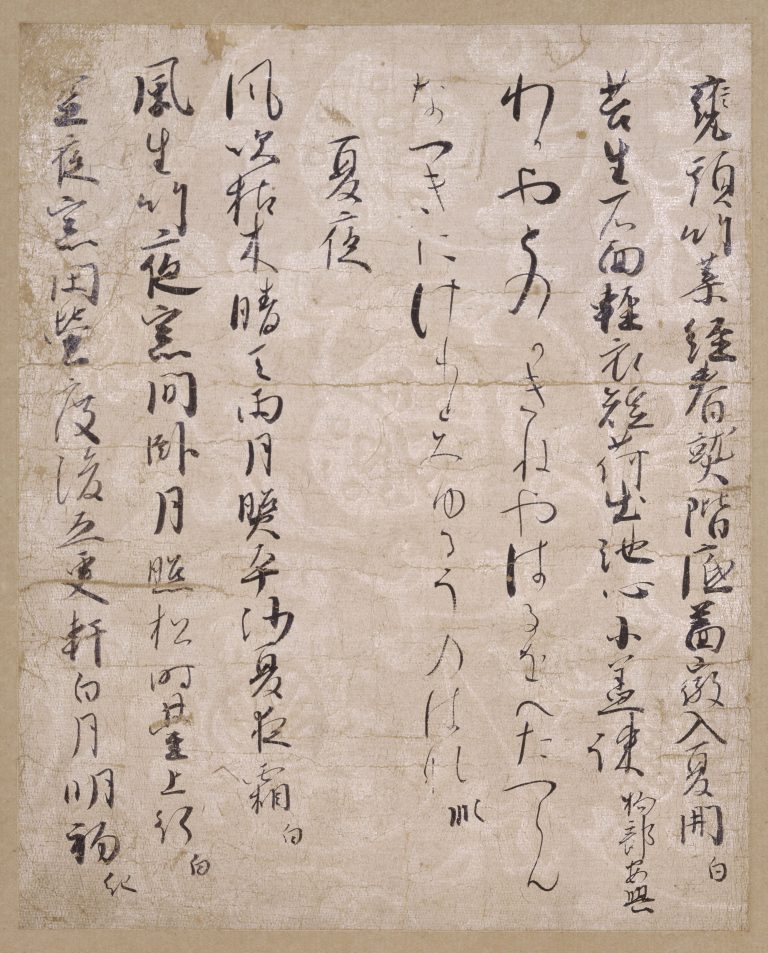 甕頭竹葉經春熟階底薔薇入夏開 白
苔生石面輕衣短荷出池心小蓋疎 物部安興
わかやとのかきねやはるをへたつらん
なつきにけりとみゆるうのはな 順
夏夜
風吹枯木晴天雨月照平沙夏夜霜 白
風生竹夜窓間臥月照松時臺上行 白
空夜窓閑螢度後五更軒白月明初 紀